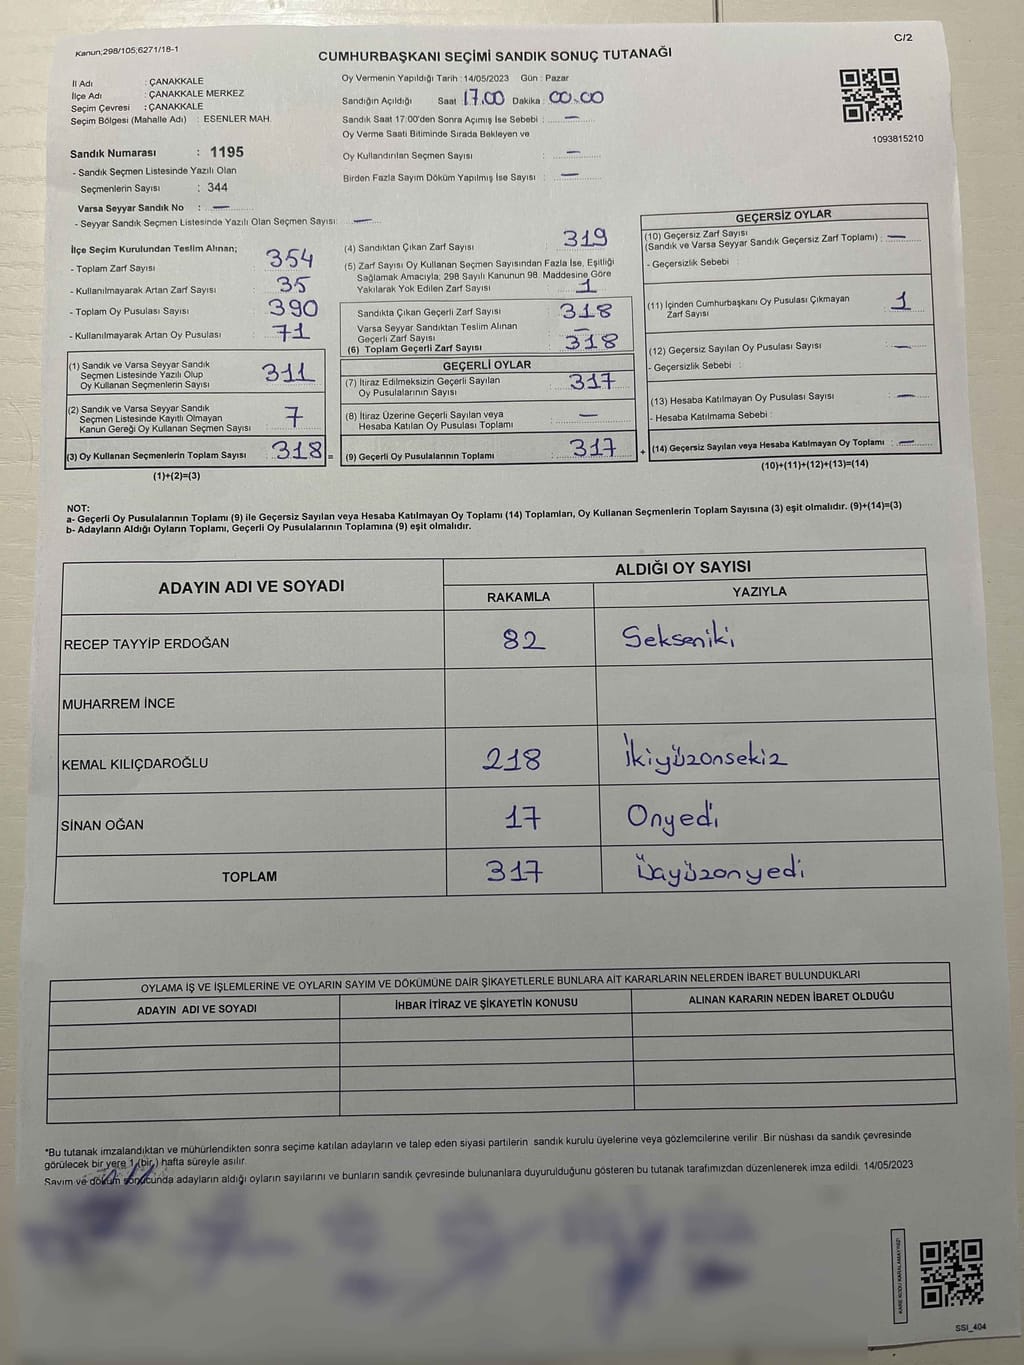 Kanun;298/105;6271/18-1
C/2
CUMHURBAŞKANI SEÇİMİ SANDIK SONUÇ TUTANAĞI
İl Adı : ÇANAKKALE
İlçe Adı : ÇANAKKALE MERKEZ
Seçim Çevresi : ÇANAKKALE
Seçim Bölgesi (Mahalle Adı) : ESENLER MAH.
Oy Vermenin Yapıldığı Tarih : 14/05/2023 Gün : Pazar
Sandığın Açıldığı Saat 17.00 Dakika : 00.00
Sandık Saat 17:00'den Sonra Açımış İse Sebebi : —
Oy Verme Saati Bitiminde Sırada Bekleyen ve
Oy Kullandırılan Seçmen Sayısı : —
Birden Fazla Sayım Döküm Yapılmış İse Sayısı : —
1093815210
Sandık Numarası : 1195
- Sandık Seçmen Listesinde Yazılı Olan
Seçmenlerin Sayısı : 344
Varsa Seyyar Sandık No : —
- Seyyar Sandık Seçmen Listesinde Yazılı Olan Seçmen Sayısı: —
İlçe Seçim Kurulundan Teslim Alınan;
- Toplam Zarf Sayısı : 354
- Kullanılmayarak Artan Zarf Sayısı : 35
- Toplam Oy Pusulası Sayısı : 390
- Kullanılmayarak Artan Oy Pusulası : 71
(1) Sandık ve Varsa Seyyar Sandık
Seçmen Listesinde Yazılı Olup
Oy Kullanan Seçmenlerin Sayısı : 311
(2) Sandık ve Varsa Seyyar Sandık
Seçmen Listesinde Kayıtlı Olmayan
Kanun Gereği Oy Kullanan Seçmen Sayısı : 7
(3) Oy Kullanan Seçmenlerin Toplam Sayısı : 318 =
(1)+(2)=(3)
(4) Sandıktan Çıkan Zarf Sayısı : 319
(5) Zarf Sayısı Oy Kullanan Seçmen Sayısından Fazla İse, Eşitliği
Sağlamak Amacıyla; 298 Sayılı Kanunun 98. Maddesine Göre
Yakılarak Yok Edilen Zarf Sayısı : 1
Sandıkta Çıkan Geçerli Zarf Sayısı : 318
Varsa Seyyar Sandıktan Teslim Alınan
Geçerli Zarf Sayısı : —
(6) Toplam Geçerli Zarf Sayısı : 318
GEÇERLİ OYLAR
(7) İtiraz Edilmeksizin Geçerli Sayılan
Oy Pusulalarının Sayısı : 317
(8) İtiraz Üzerine Geçerli Sayılan veya
Hesaba Katılan Oy Pusulası Toplamı : —
(9) Geçerli Oy Pusulalarının Toplamı : 317 +
GEÇERSİZ OYLAR
(10) Geçersiz Zarf Sayısı
(Sandık ve Varsa Seyyar Sandık Geçersiz Zarf Toplamı) : —
- Geçersizlik Sebebi :
(11) İçinden Cumhurbaşkanı Oy Pusulası Çıkmayan
Zarf Sayısı : 1
(12) Geçersiz Sayılan Oy Pusulası Sayısı : —
- Geçersizlik Sebebi :
(13) Hesaba Katılmayan Oy Pusulası Sayısı : —
- Hesaba Katılmama Sebebi :
(14) Geçersiz Sayılan veya Hesaba Katılmayan Oy Toplamı : —
(10)+(11)+(12)+(13)=(14)
NOT:
a- Geçerli Oy Pusulalarının Toplamı (9) ile Geçersiz Sayılan veya Hesaba Katılmayan Oy Toplamı (14) Toplamları, Oy Kullanan Seçmenlerin Toplam Sayısına (3) eşit olmalıdır. (9)+(14)=(3)
b- Adayların Aldığı Oyların Toplamı, Geçerli Oy Pusulalarının Toplamına (9) eşit olmalıdır.
ADAYIN ADI VE SOYADI
ALDIĞI OY SAYISI
RAKAMLA YAZIYLA
RECEP TAYYİP ERDOĞAN 82 Sekseniki
MUHARREM İNCE
KEMAL KILIÇDAROĞLU 218 İkiyüzonsekiz
SİNAN OĞAN 17 Onyedi
TOPLAM 317 Üçyüzonyedi
OYLAMA İŞ VE İŞLEMLERİNE VE OYLARIN SAYIM VE DÖKÜMÜNE DAİR ŞİKAYETLERLE BUNLARA AİT KARARLARIN NELERDEN İBARET BULUNDUKLARI
ADAYIN ADI VE SOYADI İHBAR İTİRAZ VE ŞİKAYETİN KONUSU ALINAN KARARIN NEDEN İBARET OLDUĞU
*Bu tutanak imzalandıktan ve mühürlendikten sonra seçime katılan adayların ve talep eden siyasi partilerin sandık kurulu üyelerine veya gözlemcilerine verilir. Bir nüshası da sandık çevresinde
görülecek bir yere 1 (bir) hafta süreyle asılır.
Sayım ve döküm sonucunda adayların aldığı oyların sayılarını ve bunların sandık çevresinde bulunanlara duyurulduğunu gösteren bu tutanak tarafımızdan düzenlenerek imza edildi. 14/05/2023
KARE KODU KARALAMAYINIZ!
SSI_404